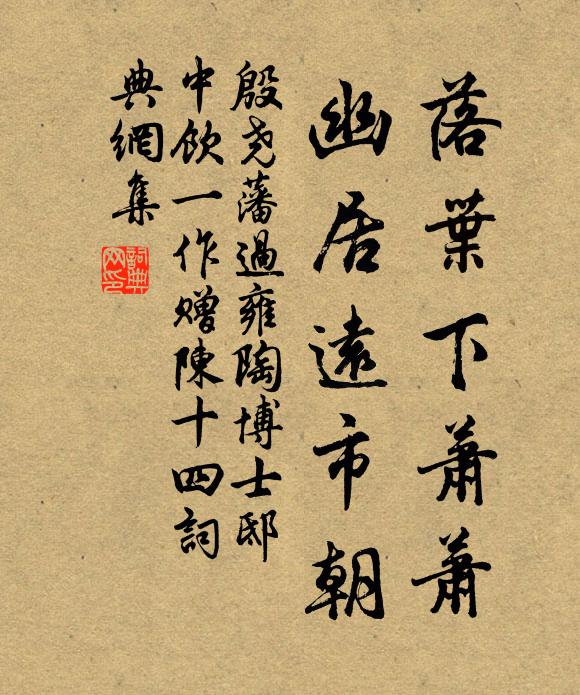 落葉下蕭蕭
幽居遠市朝
殷尧藩過雍陶博士邸
中飲一作贈陳十四詞
典網集
詞典網印